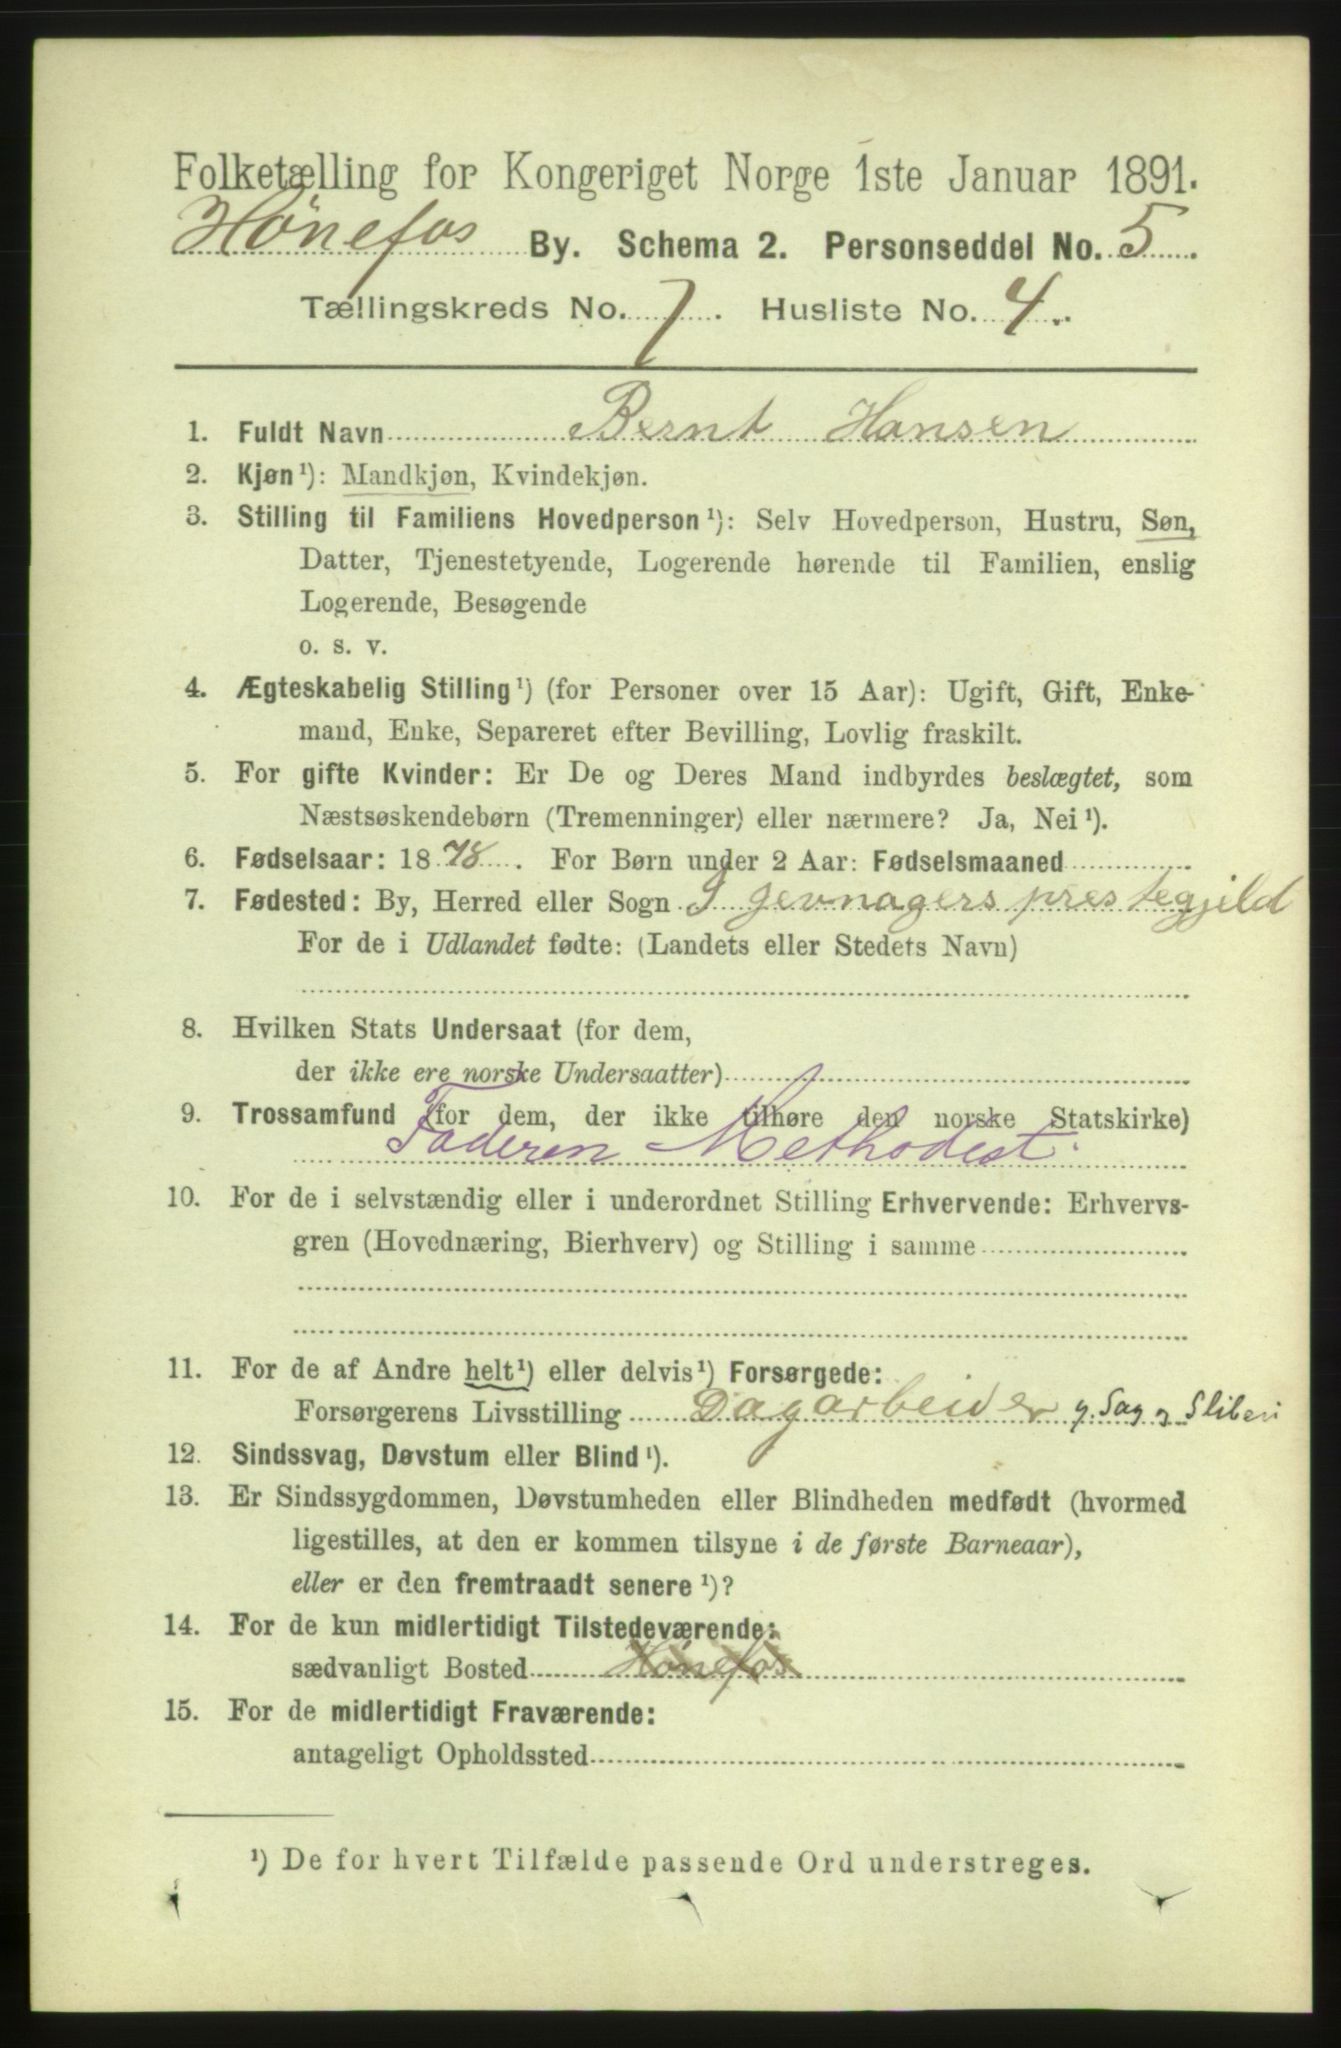 Folketælling for Kongeriget Norge 1ste Januar 1891.
Hønefos By. Schema 2. Personseddel No. 5
Tællingskreds No. 7. Husliste No. 4.
1. Fuldt Navn Bernt Hansen
2. Kjøn¹): Mandkjøn, Kvindekjøn.
3. Stilling til Familiens Hovedperson¹): Selv Hovedperson, Hustru, Søn,
Datter, Tjenestetyende, Logerende hørende til Familien, enslig
Logerende, Besøgende
o. s. v.
4. Ægteskabelig Stilling¹) (for Personer over 15 Aar): Ugift, Gift, Enke-
mand, Enke, Separeret efter Bevilling, Lovlig fraskilt.
5. For gifte Kvinder: Er De og Deres Mand indbyrdes beslægtet, som
Næstsøskendebørn (Tremenninger) eller nærmere? Ja, Nei¹).
6. Fødselsaar: 1878. For Børn under 2 Aar: Fødselsmaaned
7. Fødested: By, Herred eller Sogn I gevnagers prestegjeld
For de i Udlandet fødte: (Landets eller Stedets Navn)
8. Hvilken Stats Undersaat (for dem,
der ikke ere norske Undersaatter)
9. Trossamfund (for dem, der ikke tilhøre den norske Statskirke)
Faderen Methodist.
10. For de i selvstændig eller i underordnet Stilling Erhvervende: Erhvervs-
gren (Hovednæring, Bierhverv) og Stilling i samme
11. For de af Andre helt¹) eller delvis¹) Forsørgede:
Forsørgerens Livsstilling Dagarbeider Sag Sliberi
12. Sindssvag, Døvstum eller Blind¹).
13. Er Sindssygdommen, Døvstumheden eller Blindheden medfødt (hvormed
ligestilles, at den er kommen tilsyne i de første Barneaar),
eller er den fremtraadt senere¹)?
14. For de kun midlertidigt Tilstedeværende:
sædvanligt Bosted Hønefos
15. For de midlertidigt Fraværende:
antageligt Opholdssted
¹) De for hvert Tilfælde passende Ord understreges.